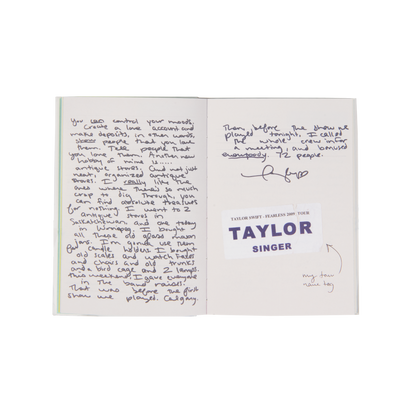 You can control your moods.
Create a love account and
make deposits, in other words
shower people that you love
them. Tell people that
you love them. Another new
hobby of mine is.....
antique stores. And not just
neat, organized antique
stores. I really like the
ones where there's so much
crap to dig through, you
can find absolute treasures
for nothing. I went to 2
antique stores in
Saskatchewan and one today
in Winnipeg. I bought
all these old glass mason
jars. I'm gonna use them
for candle holders. I bought
old scales and watch faces
and chairs and old trunks
and a bird cage and 2 lamps.
This weekend, I gave everyone
in the band raises.
That was before the first
show we played. Calgary.
Then before the show we
played tonight, I called
the whole crew in for
a meeting, and bonused
everybody. 72 people.
TAYLOR SWIFT • FEARLESS 2009 TOUR
TAYLOR
SINGER
my tour
name tag